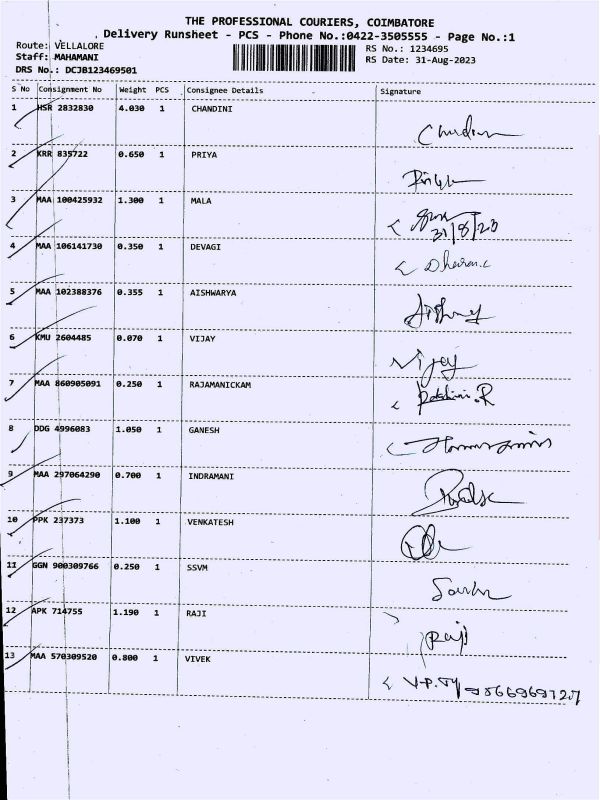 THE PROFESSIONAL COURIERS, COIMBATORE
Delivery Runsheet - PCS - Phone No.:0422-3505555 - Page No.:1
Route: VELLALORE
RS No.: 1234695
Staff: MAHAMANI
RS Date: 31-Aug-2023
DRS No.: DCJB123469501
S No Consignment No Weight PCS Consignee Details Signature
1 HSR 2832830 4.030 1 CHANDINI
2 KRR 835722 0.650 1 PRIYA
3 MAA 100425932 1.300 1 MALA
31/8/23
4 MAA 106141730 0.350 1 DEVAGI
5 MAA 102388376 0.355 1 AISHWARYA
6 KMU 2604485 0.070 1 VIJAY
Vijay
7 MAA 860905091 0.250 1 RAJAMANICKAM
8 DDG 4996083 1.050 1 GANESH
9 MAA 297064290 0.700 1 INDRAMANI
10 PPK 237373 1.100 1 VENKATESH
11 GGN 900309766 0.250 1 SSVM
12 APK 714755 1.190 1 RAJI
Raji
13 MAA 570309520 0.800 1 VIVEK